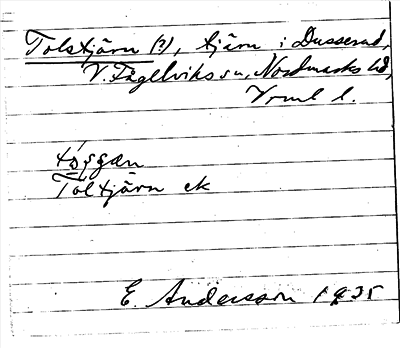 Tolstjärn (?), tjärn i Dusserud,
V. Fågelviks sn, Nordmarks hd,
Vrml l.
Töltjärn ek
E. Andersson 1935